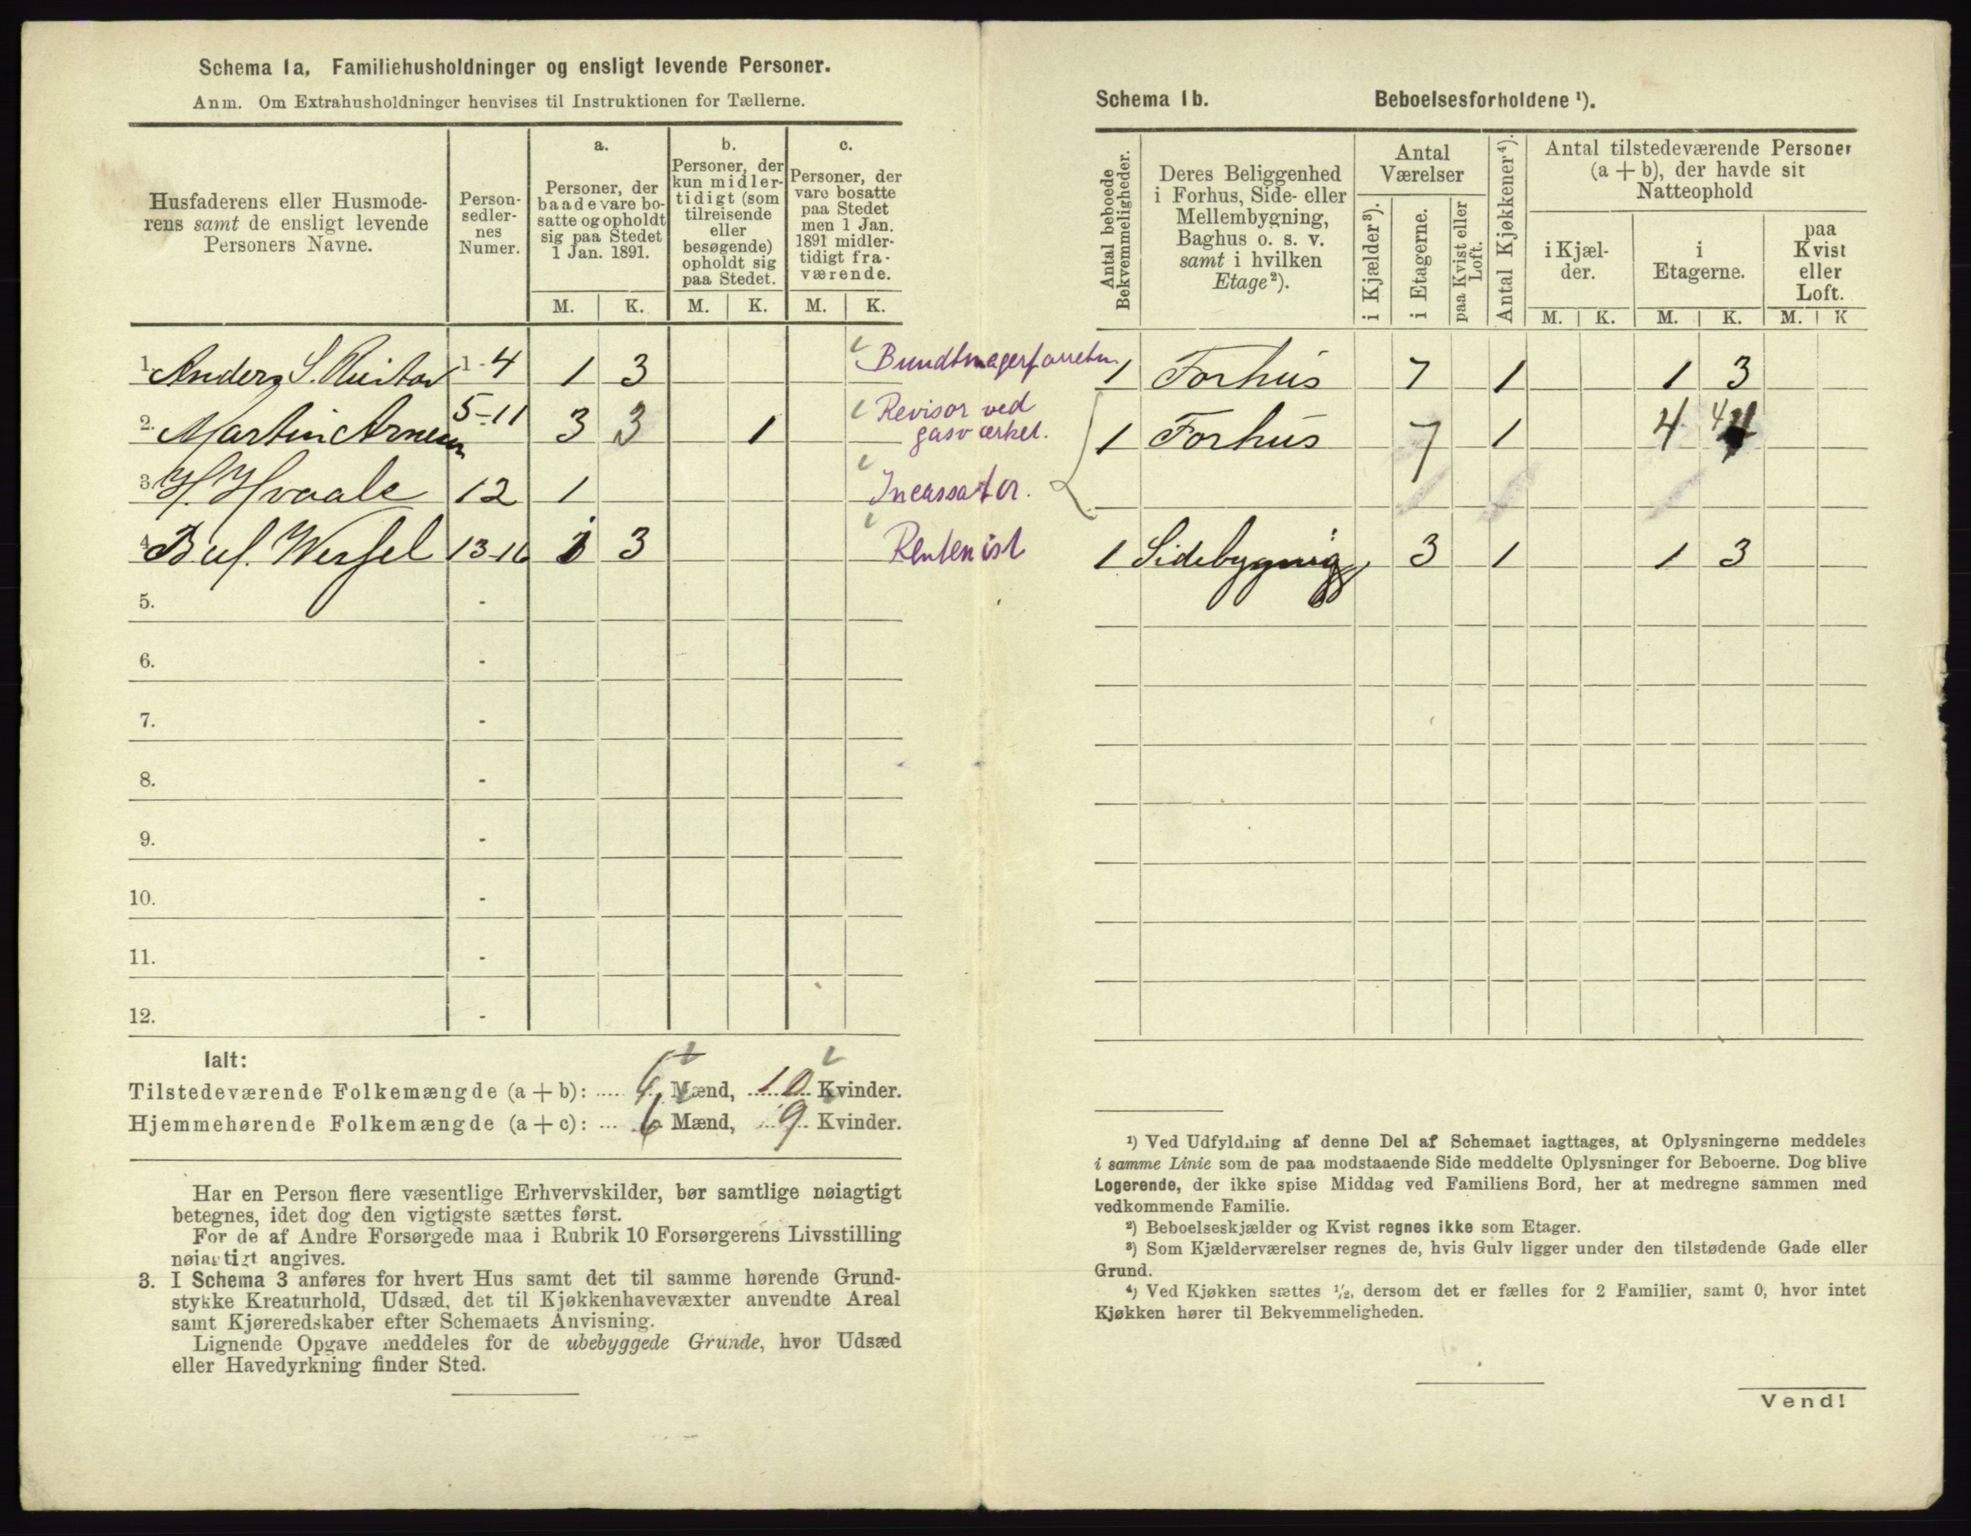 Schema 1a, Familiehusholdninger og ensligt levende Personer.
Anm. Om Extrahusholdninger henvises til Instruktionen for Tællerne.
Husfaderens eller Husmode-
rens samt de ensligt levende
Personers Navne.
Person-
sedler-
nes
Numer.
a.
Personer, der
baade vare bo-
satte og opholdt
sig paa Stedet
1 Jan. 1891.
b.
Personer, der
kun midler-
tidigt (som
tilreisende
eller
besøgende)
opholdt sig
paa Stedet.
c.
Personer, der
vare bosatte
paa Stedet
men 1 Jan.
1891 midler-
tidigt fra-
værende.
M. K. M. K. M. K.
1. Anders S. 1-4 1 3 Bundtmagerforretn
2. Martin Arnesen 5-11 3 3 1 Revisor ved
gasværket.
3. H. Hvaale 12 1 Incassator.
4. 13-16 1 3 Rentenist
5. -
6. -
7. -
8. -
9. -
10. -
11. -
12. -
Ialt:
Tilstedeværende Folkemængde (a+b): .... 6 Mænd, 10 Kvinder.
Hjemmehørende Folkemængde (a+c): ... 6 Mænd, 9 Kvinder.
Har en Person flere væsentlige Erhvervskilder, bør samtlige nøiagtigt
betegnes, idet dog den vigtigste sættes først.
For de af Andre Forsørgede maa i Rubrik 10 Forsørgerens Livsstilling
nøiagtigt angives.
3. I Schema 3 anføres for hvert Hus samt det til samme hørende Grund-
stykke Kreaturhold, Udsæd, det til Kjøkkenhavevæxter anvendte Areal
samt Kjøreredskaber efter Schemaets Anvisning.
Lignende Opgave meddeles for de ubebyggede Grunde, hvor Udsæd
eller Havedyrkning finder Sted.
Schema 1b. Beboelsesforholdene ¹).
Antal beboede
Bekvemmeligheder.
Deres Beliggenhed
i Forhus, Side- eller
Mellembygning,
Baghus o. s. v.
samt i hvilken
Etage ²).
Antal
Værelser
i Kjælder ³).
i Etagerne.
paa Kvist eller
Loft.
Antal Kjøkkener ⁴).
Antal tilstedeværende Personer
(a + b), der havde sit
Natteophold
i Kjæl-
der.
i
Etagerne.
paa
Kvist
eller
Loft.
M. K. M. K. M. K
1 Forhus 7 1 1 3
1 Forhus 7 1 4 4
1 Sidebygning 3 1 1 3
¹) Ved Udfyldning af denne Del af Schemaet iagttages, at Oplysningerne meddeles
i samme Linie som de paa modstaaende Side meddelte Oplysninger for Beboerne. Dog blive
Logerende, der ikke spise Middag ved Familiens Bord, her at medregne sammen med
vedkommende Familie.
²) Beboelseskjælder og Kvist regnes ikke som Etager.
³) Som Kjælderværelser regnes de, hvis Gulv ligger under den tilstødende Gade eller
Grund.
⁴) Ved Kjøkken sættes ½, dersom det er fælles for 2 Familier, samt 0, hvor intet
Kjøkken hører til Bekvemmeligheden.
Vend!